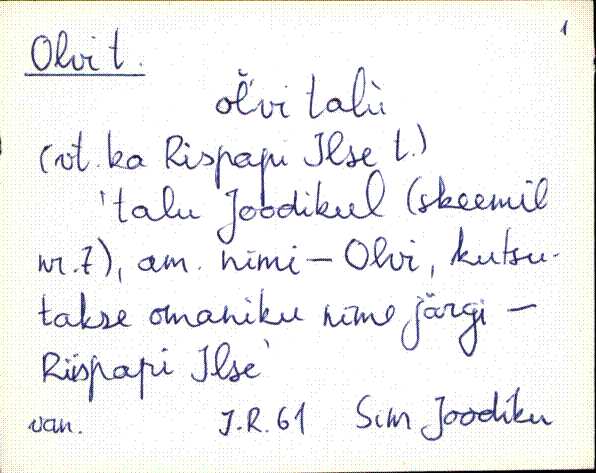 1
Olvi t.
oĺ̆vi talù
(vt. ka Rispapi Ilse t.)
'talu Joodikul (skeemil
nr. 7), am. nimi – Olvi, kutsu-
takse omaniku nime järgi –
Riispapi Ilse'
van. J.R. 61 Sim Joodiku